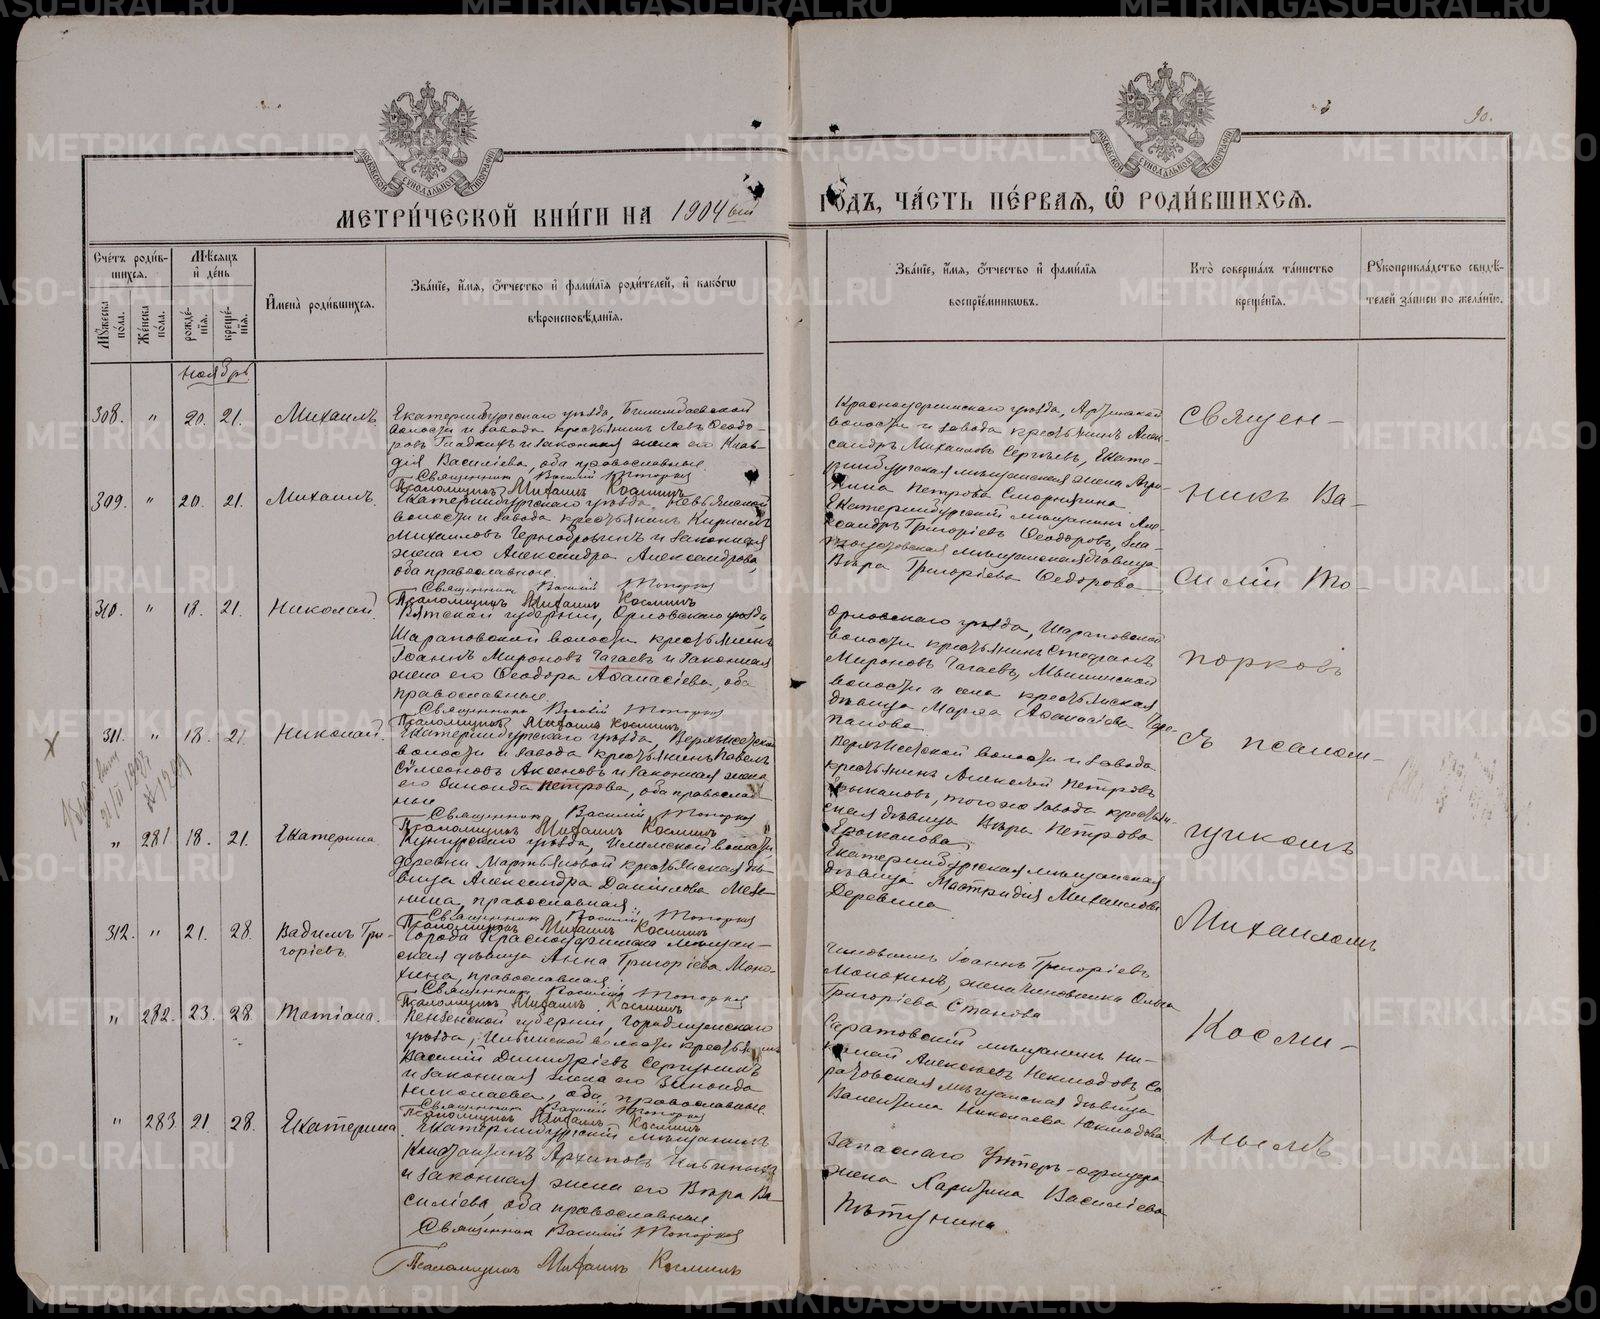 90.
МОСКОВСКОЙ СѴНОДАЛЬНОЙ ТИПОГРАФІИ
МОСКОВСКОЙ СѴНОДАЛЬНОЙ ТИПОГРАФІИ
МЕТРИ́ЧЕСКОЙ КНИ́ГИ НА 1904 ый ГОДЪ, ЧА́СТЬ ПЕ́РВАЯ, Ѿ РОДИ́ВШИХСЯ.
Сче́тъ роди́в-
шихся.
Му́жеска по́ла.
Же́нска по́ла.
Мѣ́сяцъ и де́нь
рожде́нія.
креще́нія.
Имена̀ роди́вшихся.
Зва́ніе, и́мя, о́тчество и фами́лія роди́телей, и како́гѡ
вѣроисповѣ́данія.
Зва́ніе, и́мя, о́тчество и фами́лія
воспріе́мникѡвъ.
Кто̀ соверша́лъ та́инство
креще́нія.
Рукоприкла́дство свидѣ́-
телей за́писи по жела́нію.
Ноябрь
308. " 20. 21. Михаилъ
Екатеринбургскаго уѣзда, Билимбаевской
волости и завода крестьянинъ Левъ Ѳеодо-
ровъ Гладкихъ и законная жена его Клав-
дія Василіева, оба православные.
Священникъ Василій Топорковъ
Псаломщикъ Михаилъ Косминъ
Красноуфимскаго уѣзда, Артинской
волости и завода крестьянинъ Алек-
сандръ Михаиловъ Сергѣевъ, Екате-
ринбургская мѣщанская жена Агри-
пина Петрова
309. " 20. 21. Михаилъ
Екатеринбургскаго уѣзда, Невьянской
волости и завода крестьянинъ Кириллъ
Михаиловъ Чернобровинъ и законная
жена его Александра Александрова,
оба православные.
Священникъ Василій Топорковъ
Псаломщикъ Михаилъ Косминъ
Екатеринбургскій мѣщанинъ Але-
ксандръ Григоріевъ Ѳеодоровъ, Зла-
тоустовская мѣщанская дѣвица
Вѣра Григоріева Ѳедорова
310. " 18. 21. Николай
Вятской губерніи, Орловскаго уѣзда
Шараповской волости крестьянинъ
Іоаннъ Мироновъ Чагаевъ и законная
жена его Ѳеодора Аѳанасіева, оба
православные
Священникъ Василій Топорковъ
Псаломщикъ Михаилъ Косминъ
Орловскаго уѣзда, Шараповской
волости крестьянинъ Стефанъ
Мироновъ Чагаевъ,
волости и села крестьянская
дѣвица Марѳа Аѳанасіева
311. " 18. 21 Николай.
Екатеринбургскаго уѣзда, Верхъ-Исетской
волости и завода крестьянинъ Павелъ
Сѵмеоновъ Аксеновъ и законная жена
его Зинаида Петрова, оба православ-
ные
Священникъ Василій Топорковъ
Псаломщикъ Михаилъ Косминъ
Верхъ-Исетской волости и завода
крестьянинъ Алексѣй Петровъ
того же завода крестьян-
ская дѣвица Вѣра Петрова
" 281 18. 21. Екатерина
Кунгурскаго уѣзда, Илимской волости
деревни Мартьяновой крестьянская дѣ-
вица Александра Даніилова Мезе-
нина, православная.
Священникъ Василій Топорковъ
Псаломщикъ Михаилъ Косминъ
Екатеринбургская мѣщанская
дѣвица Мастридія Михаилова
Деревина
312. " 21. 28. Вадимъ Гри-
горіевъ.
Города Красноуфимска мѣщан-
ская дѣвица Анна Григоріева Моно-
хина, православная.
Священникъ Василій Топорковъ
Псаломщикъ Михаилъ Косминъ
Чиновникъ Іоаннъ Григоріевъ
Монохинъ, жена чиновника Ольга
Григоріева Станова
" 282. 23. 28 Татіана.
Пензенской губерніи, Городищенскаго
уѣзда, волости крестьянинъ
Василій Димитріевъ Сергунинъ
и законная жена его Зинаида
Николаева, оба православные.
Священникъ Василій Топорковъ
Псаломщикъ Михаилъ Косминъ
Саратовскій мѣщанинъ Ни-
колай Алексѣевъ Неклюдовъ, Са-
ратовская мѣщанская дѣвица
Валентина Николаева Неклюдова
" 283. 21. 28. Екатерина.
Екатеринбургскій мѣщанинъ
Архиповъ
и законная жена его Вѣра Ва-
силіева, оба православные
Священникъ Василій Топорковъ
Псаломщикъ Михаилъ Косминъ
Запаснаго Унтеръ-офицера
жена Харитина Василіева
Пѣтунина.
Священ-
никъ Ва-
силій То-
порковъ
съ псалом-
щикомъ
Михаиломъ
Косми-
нымъ
METRIKI.GASO-URAL.RU